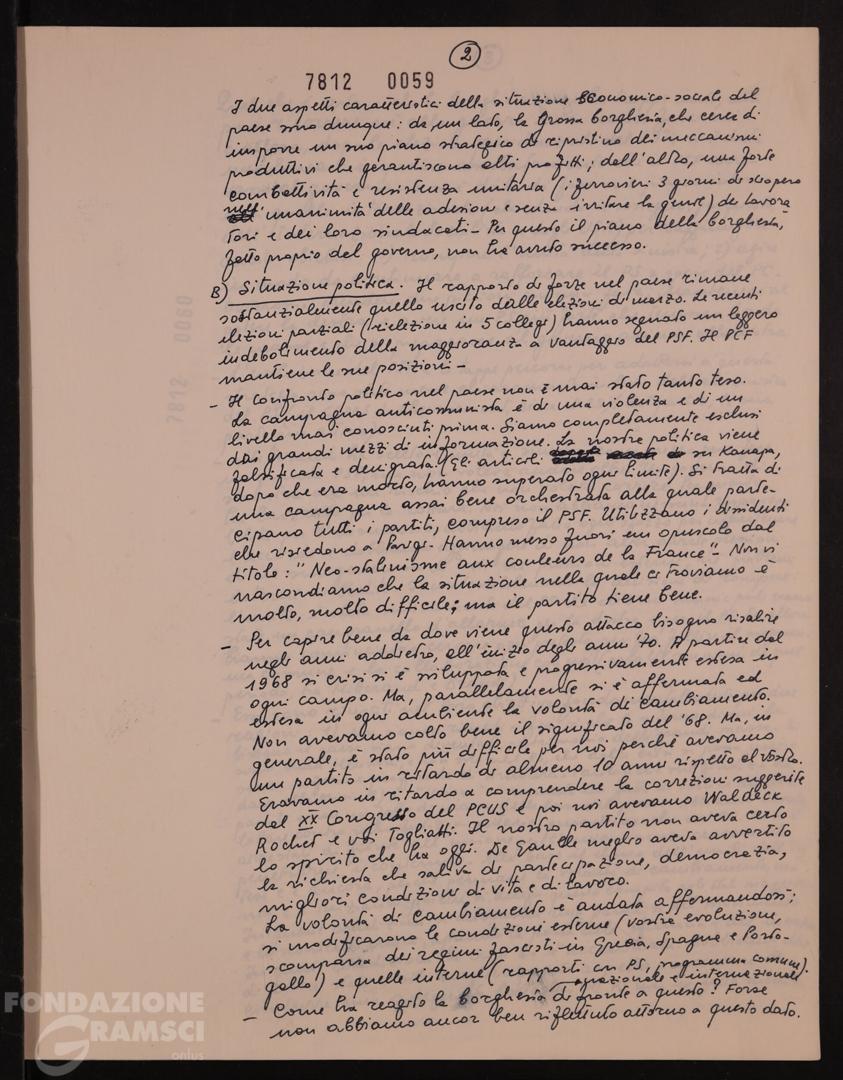 2
7812 0059
I due aspetti caratteristici della situazione economico-sociale del
paese sono dunque: da un lato, la Grossa borghesia, che cerca di
imporre un suo piano strategico di ripristino dei meccanismi
produttivi che garantiscono alti profitti; dall'altro, una forte
combattività e resistenza unitaria (i ferrovieri 3 giorni di sciopero
nell'unanimità delle adesioni e senza irritare la gente) dei lavora
tori e dei loro sindacati - Per questo il piano della borghesia,
fatto proprio del governo, non ha avuto successo.
B) Situazione politica. Il rapporto di forze nel paese rimane
sostanzialmente quello uscito dalle elezioni di marzo. Le recenti
elezioni parziali (rielezione in 5 collegi) hanno segnato un leggero
indebolimento della maggioranza a vantaggio del PSF. Il PCF
mantiene le sue posizioni -
- Il confronto politico nel paese non è mai stato tanto teso.
La campagna anticomunista è di una violenza e di un
livello mai conosciuti prima. Siamo completamente esclusi
dai grandi mezzi di informazione. La nostra politica viene
falsificata e denigrata. (Gli articoli su Kanapa,
dopo che era morto, hanno superato ogni limite). Si tratta di
una campagna assai bene orchestrata alla quale parte-
cipano tutti i partiti, compreso il PSF. Utilizzano i dissidenti
che risiedono a Parigi. Hanno messo fuori un opuscolo dal
titolo: "Neo-stalinisme aux couleurs de la France" - Non vi
nascondiamo che la situazione nella quale ci troviamo è
molto, molto difficile; ma il partito tiene bene.
- Per capire bene da dove viene questo attacco bisogna risalire
negli anni addietro, all'inizio degli anni '70. A partire dal
1968 la crisi si è sviluppata e progressivamente estesa in
ogni campo. Ma, parallelamente si è affermata ed
estesa in ogni ambiente la volontà di cambiamento.
Non avevamo colto bene il significato del '68. Ma, in
generale, è stato più difficile per noi perchè avevamo
un partito in ritardo di almeno 10 anni rispetto al vostro.
Eravamo in ritardo a comprendere le correzioni suggerite
dal XX Congresso del PCUS e poi noi avevamo Waldeck
Rochet e voi Togliatti. Il nostro partito non aveva certo
lo spirito che ha oggi. De Gaulle meglio aveva avvertito
la richiesta che saliva di partecipazione, democrazia,
migliori condizioni di vita e di lavoro.
La volontà di cambiamento è andata affermandosi;
si modificarono le condizioni esterne (vostra evoluzione,
scomparsa dei regimi fascisti in Grecia, Spagna e Porto-
gallo) e quelle interne (rapporti con PS, programma comune).
nazionale e internazionale
- Come ha reagito la borghesia di fronte a questo? Forse
non abbiamo ancor ben riflettuto attorno a questo dato.
7812 0060
FONDAZIONE
GRAMSCI
onlus